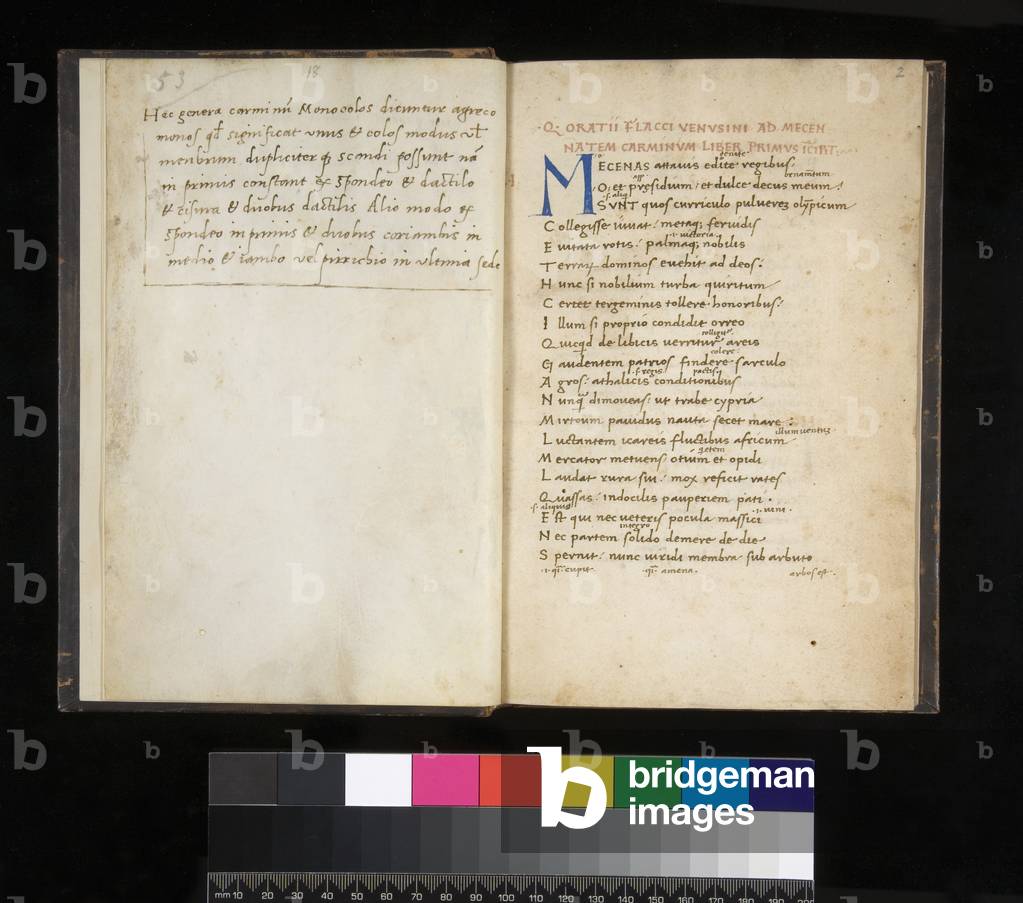 53
18
Hec genera carminū Monocolos dicuntur agreco
monos qđ significat unus & colos modus ul
menbrum dupliciter q; scandi possunt nā
in primis constant ex spondeo & dactilo
& cesura & duobus dactilis Alio modo ex
spondeo in primis & duobus coriambis in
medio & iambo vel pirrichio in ultima sede
2
·Q· ORATII FLACCI VENVSINI AD MECEN
NATEM CARMINVM LIBER PRIMVS
MECENAS attauis edite regibus·
benamtum
O: et presidium: et dulce decus meum:
SVNT quos curriculo puluerez olypicum
Collegisse iuuat: metaq; feruidis
·i· uictoria·
Euitata rotis: palmaq; nobilis
Terraꝝ dominos euehit ad deos:
Hunc si nobilium turba quiritum
Certet tergeminis tollere honoribus:
Illum si proprio condidit orreo
Quicqd de libicis uerritur areis
colere·
Gaudentem patrios findere sarculo
·s· regis
Agros: athalicis conditionibus
Nunq̄ dimoueas: ut trabe cypria
Mirtoum pauidus nauta secet mare:
illum uentuz
Luctantem icareis fluctibus africum
Mercator metuens otium et opidi
Laudat rura sui: mox reficit rates
Quassas: indocilis pauperiem pati·
·s· aliquis
·i· uini·
Est qui nec ueteris pocula massici
integro
Nec partem solido demere de die
Spernit: nunc uiridi membra sub arbuto
·i· q̄ cupit·
·q̄· amena·
arbos est·
bridgeman
images
mm 10 20 30 40 50 60 70 80 90 100 110 120 130 140 150 160 170 180 190 200